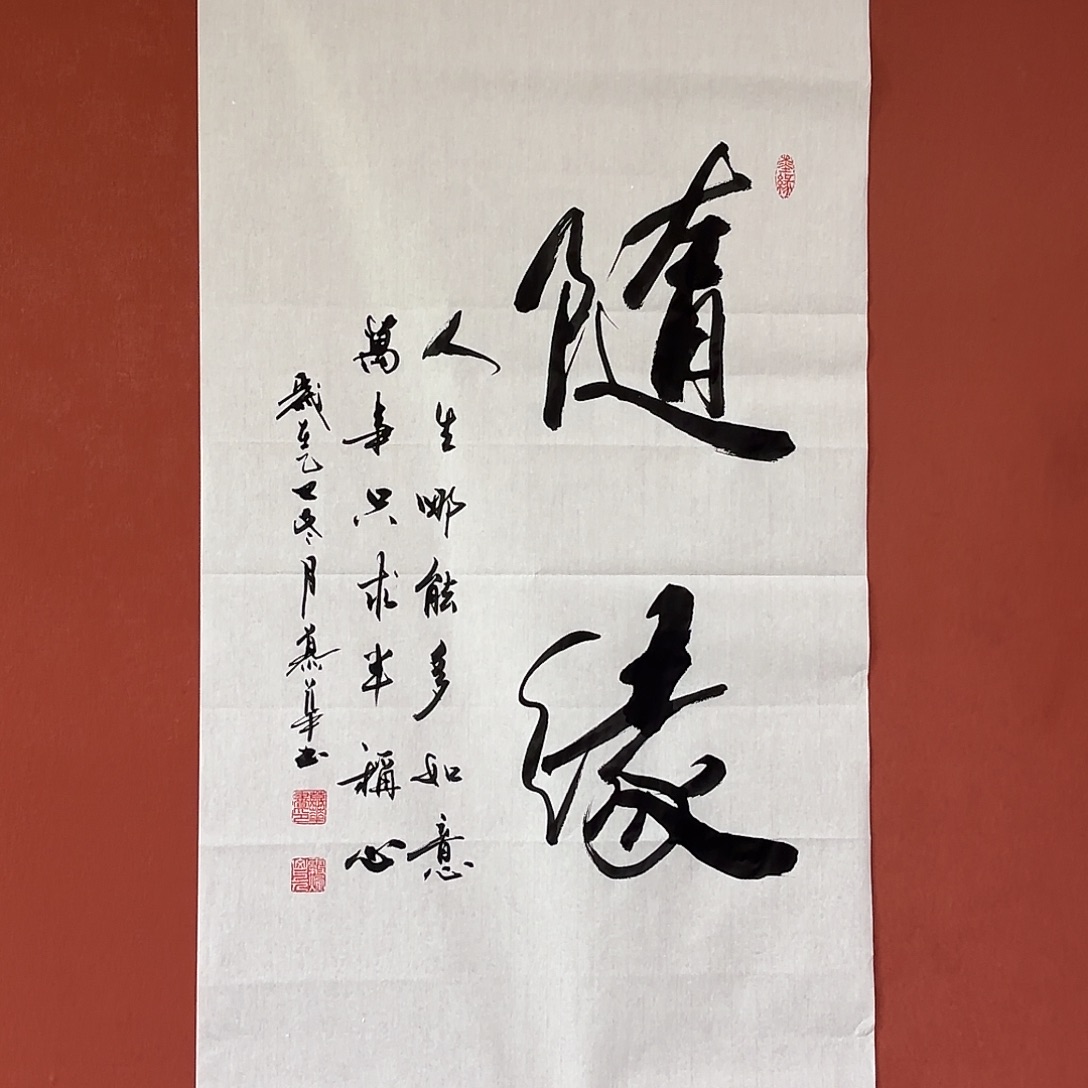 隨緣
人生哪能多如意
萬事只求半稱心
歲在乙巳冬月慕華書
墨緣